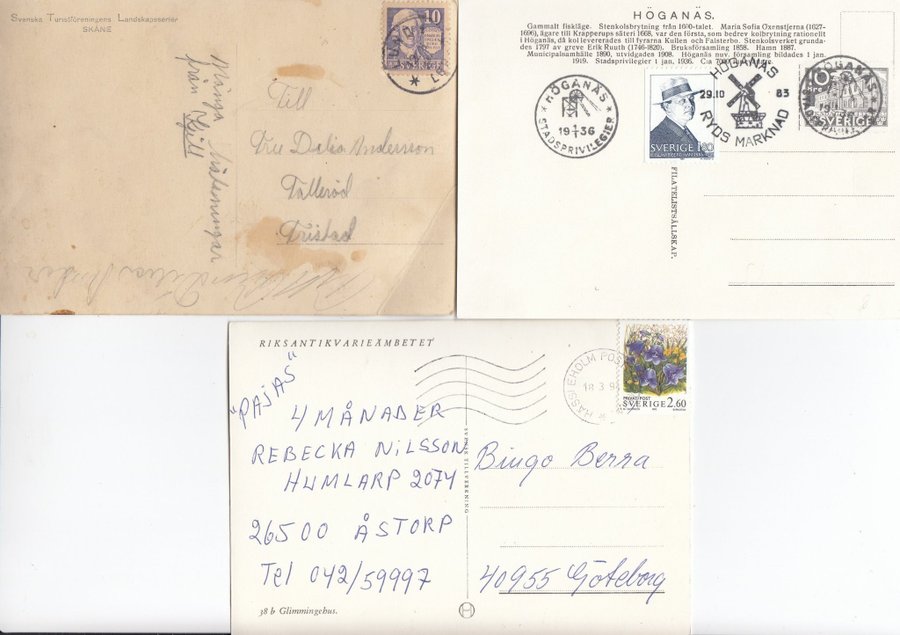 Svenska Turistföreningens Landskapsserier
SKÅNE
10
SVERIGE
Många hälsningar
från Kjell
Till
Delia Andersson
Tållered
Fristad
HÖGANÄS.
Gammalt fiskläge. Stenkolsbrytning från 1600-talet. Maria Sofia Oxenstjerna (1627-
1696), ägare till Krapperups säteri 1668, var den första, som bedrev kolbrytning rationellt
i Höganäs, då kol levererades till fyrarna Kullen och Falsterbo. Stenkolsverket grunda-
des 1797 av greve Erik Ruuth (1746-1820). Bruksförsamling 1858. Hamn 1887.
Municipalsamhälle 1890, utvidgades 1908. Höganäs nuv. församling bildades 1 jan.
1919. Stadsprivilegier 1 jan. 1936. C:a
HÖGANÄS
1936
STADSPRIVILEGIER
SVERIGE 1.80
HÖGANÄS
29.10 83
RYDS MARKNAD
10
HÖGANÄS
SVERIGE
FILATELISTSÄLLSKAP.
RIKSANTIKVARIEÄMBETET
"PAJAS"
4 MÅNADER
REBECKA NILSSON
HUMLARP 2074
26500 ÅSTORP
Tel 042/59997
38 b Glimmingehus.
SVENSK TILLVERKNING
HÄSSLEHOLM POST
18 3 9
PRIVATPOST
SVERIGE 2.60
Bingo Berra
40955 Göteborg